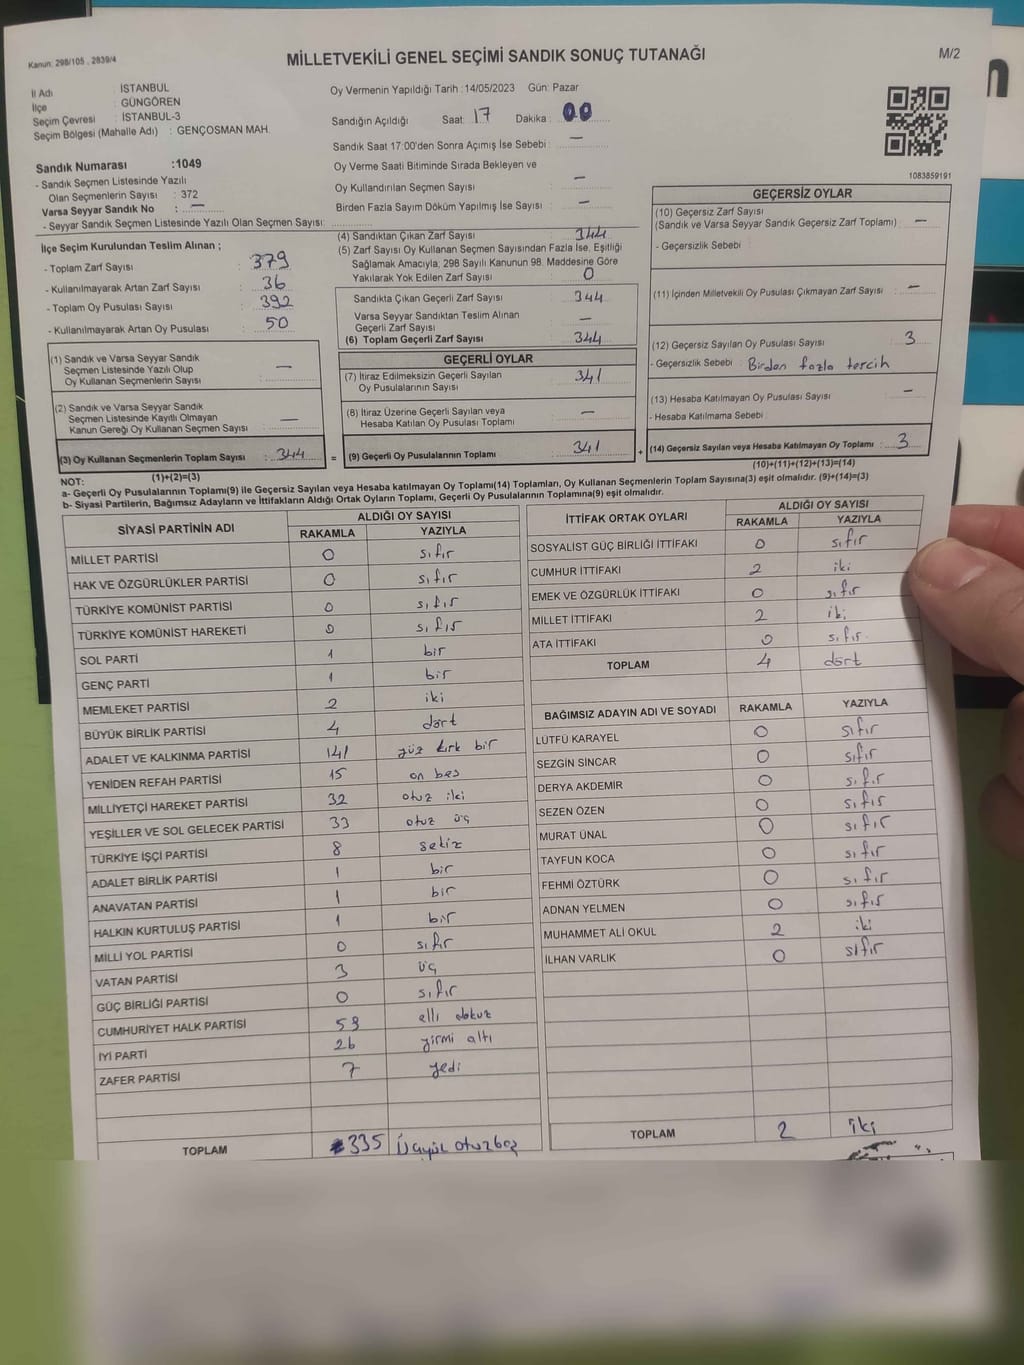 Kanun: 298/105 . 2839/4
MİLLETVEKİLİ GENEL SEÇİMİ SANDIK SONUÇ TUTANAĞI
M/2
İl Adı : İSTANBUL
İlçe : GÜNGÖREN
Seçim Çevresi : İSTANBUL-3
Seçim Bölgesi (Mahalle Adı) : GENÇOSMAN MAH.
Sandık Numarası :1049
- Sandık Seçmen Listesinde Yazılı
Olan Seçmenlerin Sayısı : 372
Varsa Seyyar Sandık No : —
- Seyyar Sandık Seçmen Listesinde Yazılı Olan Seçmen Sayısı:
Oy Vermenin Yapıldığı Tarih :14/05/2023 Gün: Pazar
Sandığın Açıldığı Saat: 17 Dakika : 00
Sandık Saat 17:00'den Sonra Açımış İse Sebebi : —
Oy Verme Saati Bitiminde Sırada Bekleyen ve
Oy Kullandırılan Seçmen Sayısı : —
Birden Fazla Sayım Döküm Yapılmış İse Sayısı : —
1083859191
İlçe Seçim Kurulundan Teslim Alınan ;
- Toplam Zarf Sayısı : 379
- Kullanılmayarak Artan Zarf Sayısı : 36
- Toplam Oy Pusulası Sayısı : 392
- Kullanılmayarak Artan Oy Pusulası : 50
(1) Sandık ve Varsa Seyyar Sandık
Seçmen Listesinde Yazılı Olup
Oy Kullanan Seçmenlerin Sayısı : —
(2) Sandık ve Varsa Seyyar Sandık
Seçmen Listesinde Kayıtlı Olmayan
Kanun Gereği Oy Kullanan Seçmen Sayısı : —
(3) Oy Kullanan Seçmenlerin Toplam Sayısı : 344
(1)+(2)=(3)
(4) Sandıktan Çıkan Zarf Sayısı : 344
(5) Zarf Sayısı Oy Kullanan Seçmen Sayısından Fazla İse, Eşitliği
Sağlamak Amacıyla, 298 Sayılı Kanunun 98. Maddesine Göre
Yakılarak Yok Edilen Zarf Sayısı : 0
Sandıkta Çıkan Geçerli Zarf Sayısı : 344
Varsa Seyyar Sandıktan Teslim Alınan
Geçerli Zarf Sayısı : —
(6) Toplam Geçerli Zarf Sayısı : 344
GEÇERLİ OYLAR
(7) İtiraz Edilmeksizin Geçerli Sayılan
Oy Pusulalarının Sayısı : 341
(8) İtiraz Üzerine Geçerli Sayılan veya
Hesaba Katılan Oy Pusulası Toplamı : —
= (9) Geçerli Oy Pusulalarının Toplamı : 341
GEÇERSİZ OYLAR
(10) Geçersiz Zarf Sayısı
(Sandık ve Varsa Seyyar Sandık Geçersiz Zarf Toplamı) : —
- Geçersizlik Sebebi :
(11) İçinden Milletvekili Oy Pusulası Çıkmayan Zarf Sayısı : —
(12) Geçersiz Sayılan Oy Pusulası Sayısı : 3
- Geçersizlik Sebebi : Birden fazla tercih
(13) Hesaba Katılmayan Oy Pusulası Sayısı : —
- Hesaba Katılmama Sebebi :
+ (14) Geçersiz Sayılan veya Hesaba Katılmayan Oy Toplamı : 3
(10)+(11)+(12)+(13)=(14)
NOT:
a- Geçerli Oy Pusulalarının Toplamı(9) ile Geçersiz Sayılan veya Hesaba katılmayan Oy Toplamı(14) Toplamları, Oy Kullanan Seçmenlerin Toplam Sayısına(3) eşit olmalıdır. (9)+(14)=(3)
b- Siyasi Partilerin, Bağımsız Adayların ve İttifakların Aldığı Ortak Oyların Toplamı, Geçerli Oy Pusulalarının Toplamına(9) eşit olmalıdır.
SİYASİ PARTİNİN ADI ALDIĞI OY SAYISI
RAKAMLA YAZIYLA
MİLLET PARTİSİ 0 sıfır
HAK VE ÖZGÜRLÜKLER PARTİSİ 0 sıfır
TÜRKİYE KOMÜNİST PARTİSİ 0 sıfır
TÜRKİYE KOMÜNİST HAREKETİ 0 sıfır
SOL PARTİ 1 bir
GENÇ PARTİ 1 bir
MEMLEKET PARTİSİ 2 iki
BÜYÜK BİRLİK PARTİSİ 4 dört
ADALET VE KALKINMA PARTİSİ 141 yüz kırk bir
YENİDEN REFAH PARTİSİ 15 on beş
MİLLİYETÇİ HAREKET PARTİSİ 32 otuz iki
YEŞİLLER VE SOL GELECEK PARTİSİ 33 otuz üç
TÜRKİYE İŞÇİ PARTİSİ 8 sekiz
ADALET BİRLİK PARTİSİ 1 bir
ANAVATAN PARTİSİ 1 bir
HALKIN KURTULUŞ PARTİSİ 1 bir
MİLLİ YOL PARTİSİ 0 sıfır
VATAN PARTİSİ 3 üç
GÜÇ BİRLİĞİ PARTİSİ 0 sıfır
CUMHURİYET HALK PARTİSİ 59 elli dokuz
İYİ PARTİ 26 yirmi altı
ZAFER PARTİSİ 7 yedi
TOPLAM 335 Üçyüz otuzbeş
İTTİFAK ORTAK OYLARI ALDIĞI OY SAYISI
RAKAMLA YAZIYLA
SOSYALİST GÜÇ BİRLİĞİ İTTİFAKI 0 sıfır
CUMHUR İTTİFAKI 2 iki
EMEK VE ÖZGÜRLÜK İTTİFAKI 0 sıfır
MİLLET İTTİFAKI 2 iki
ATA İTTİFAKI 0 sıfır
TOPLAM 4 dört
BAĞIMSIZ ADAYIN ADI VE SOYADI RAKAMLA YAZIYLA
LÜTFÜ KARAYEL 0 sıfır
SEZGİN SİNCAR 0 sıfır
DERYA AKDEMİR 0 sıfır
SEZEN ÖZEN 0 sıfır
MURAT ÜNAL 0 sıfır
TAYFUN KOCA 0 sıfır
FEHMİ ÖZTÜRK 0 sıfır
ADNAN YELMEN 0 sıfır
MUHAMMET ALİ OKUL 2 iki
İLHAN VARLIK 0 sıfır
TOPLAM 2 iki